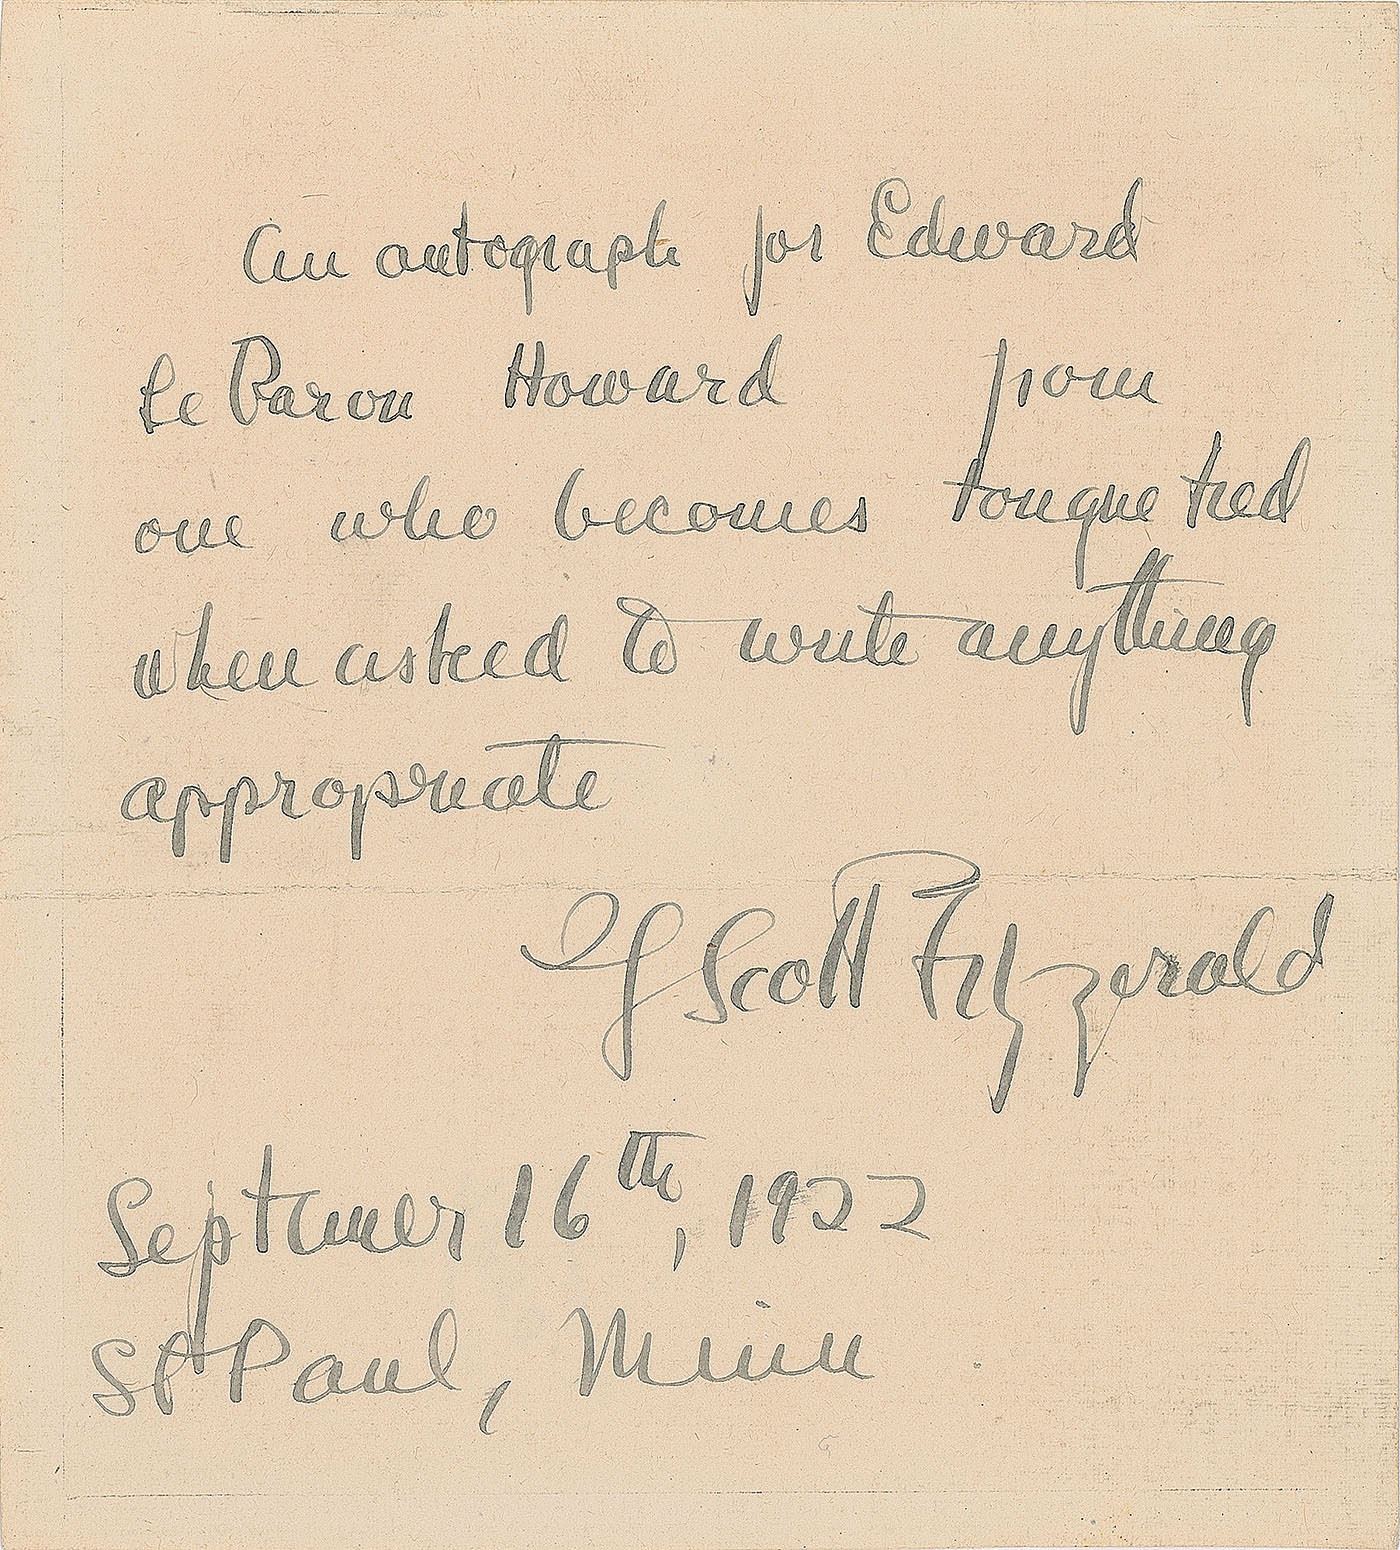 An autograph for Edward
Le Baron Howard from
one who becomes tongue tied
when asked to write anything
appropriate
F Scott Fitzgerald
Septemer 16th, 1922
St Paul, Minn